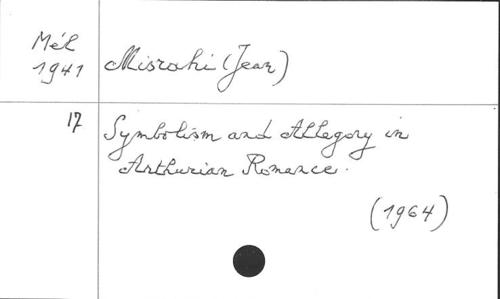 Mél
1941
Misrahi (Jean)
17
Symbolism and Allegory in
Arthurian Romance.
(1964)